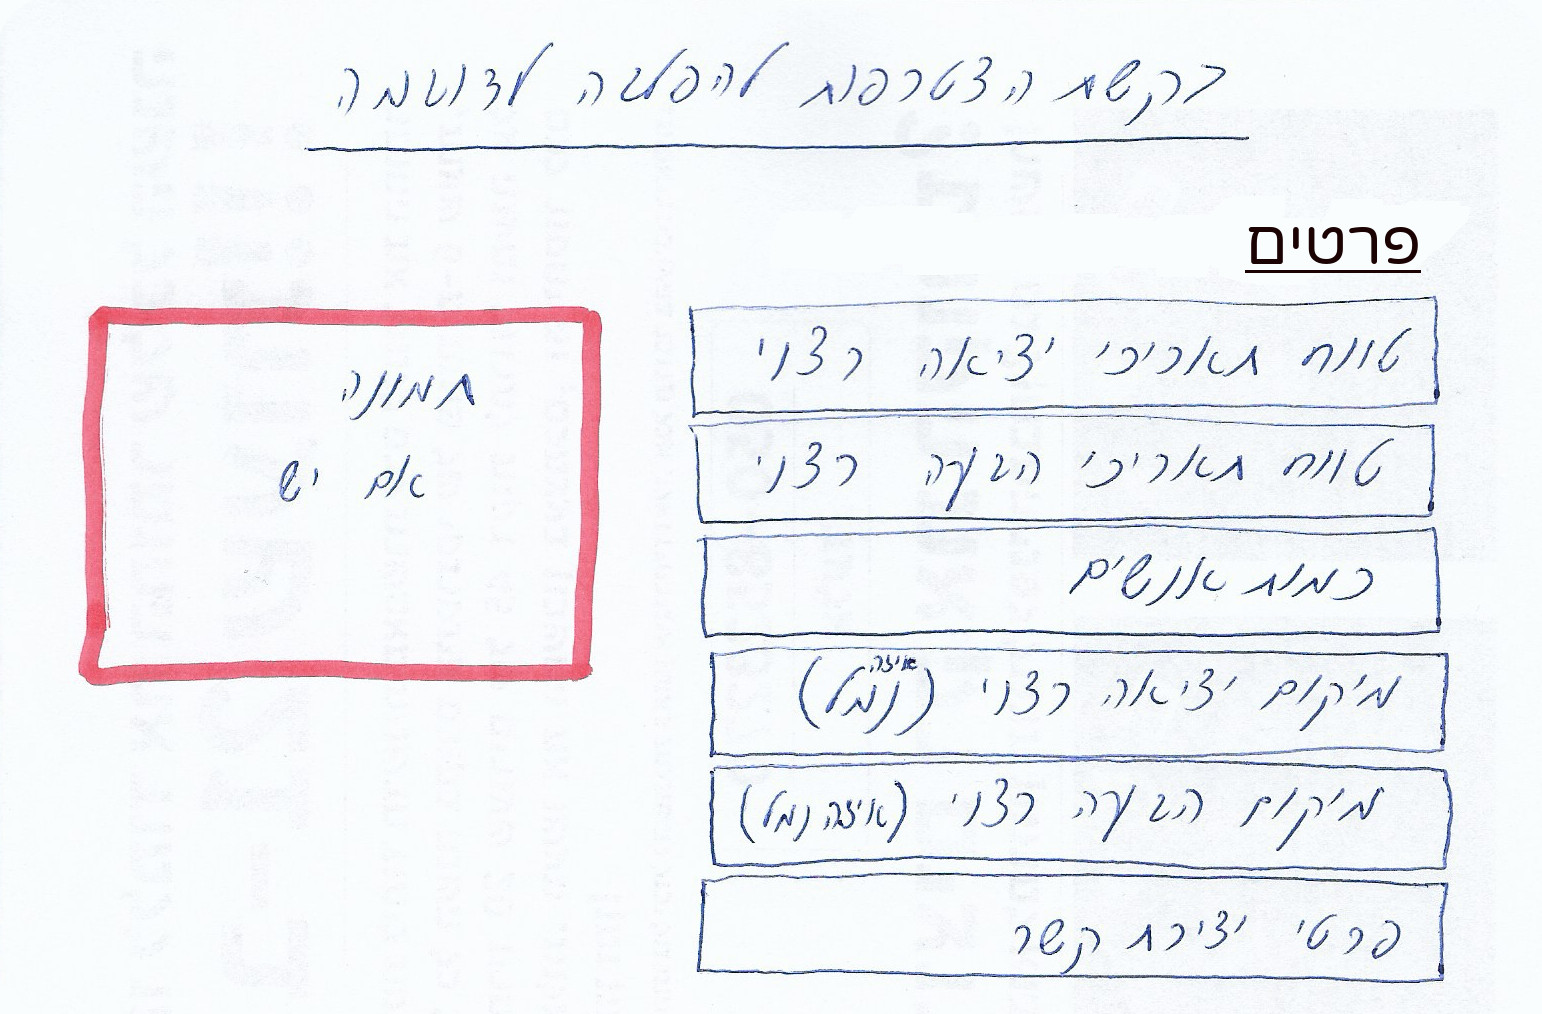 בקשת הצטרפות להפלגה לדוגמה
פרטים
טווח תאריכי יציאה רצוי
טווח תאריכי הגעה רצוי
כמות אנשים
מיקום יציאה רצוי (איזה נמל)
מיקום הגעה רצוי (איזה נמל)
פרטי יצירת קשר
תמונה
אם יש